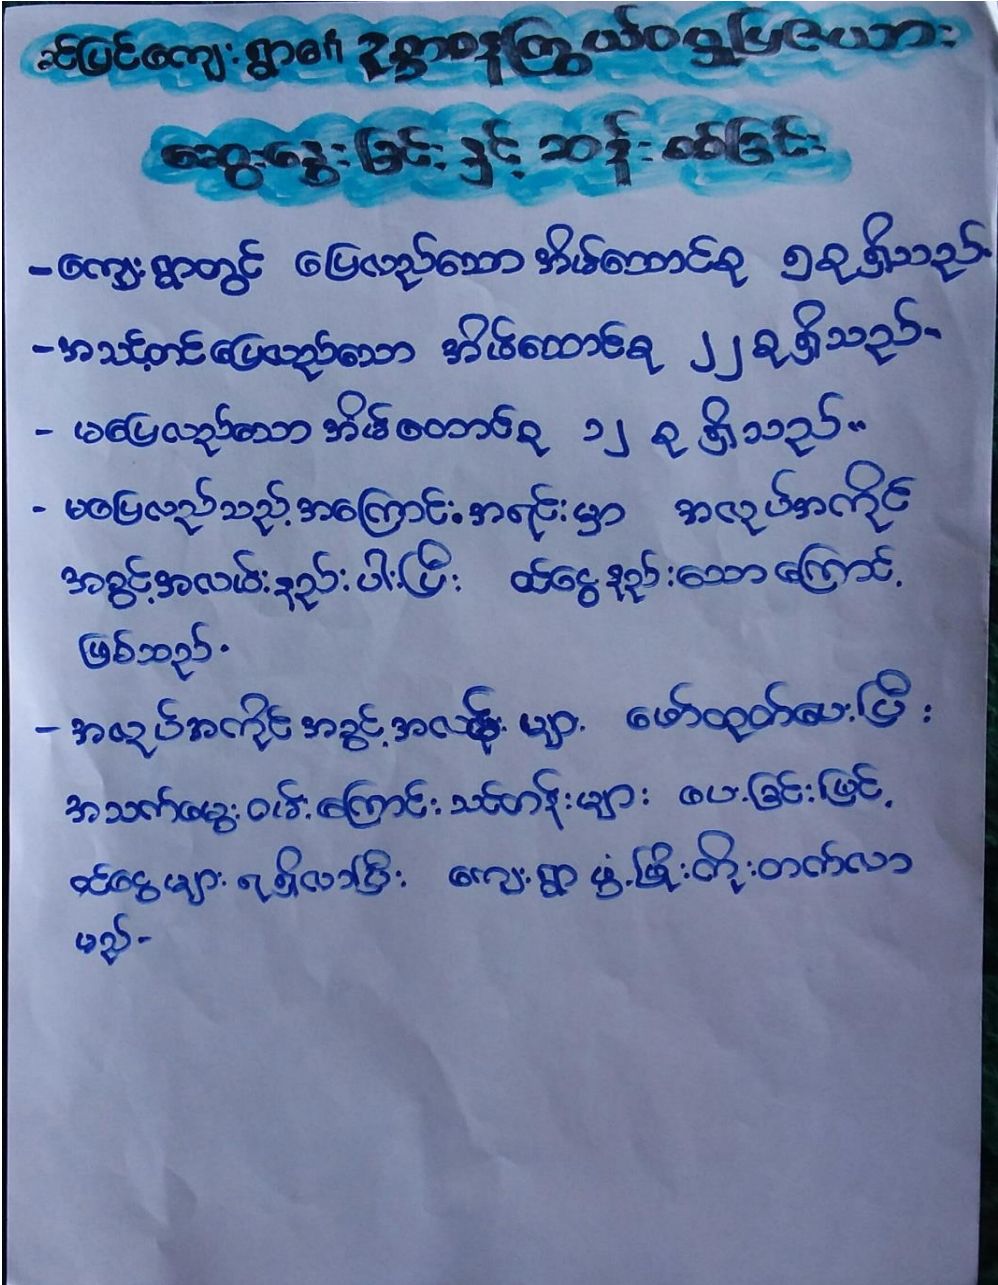 ခင်ပြင်ကျေးရွာ၏ ဥစ္စာဓနကြွယ်ဝမှုပြဇယား
ဆွေးနွေးခြင်းနှင့် ဆန်းစစ်ခြင်း
- ကျေးရွာတွင် ပြေလည်သောအိမ်ထောင်စု ၅ စုရှိသည်.
- အသင့်တင်ပြေလည်သော အိမ်ထောင်စု ၂၂ စုရှိသည်-
- မပြေလည်သောအိမ်ထောင်စု ၁၂ စုရှိသည်..
- မပြေလည်သည့်အကြောင်းအရင်းမှာ အလုပ်အကိုင်
အခွင့်အလမ်းနည်းပါးပြီး ဝင်ငွေနည်းသောကြောင့်
ဖြစ်သည်.
- အလုပ်အကိုင်အခွင့်အလမ်းများ ဖော်ထုတ်ပေးပြီး
အသက်မွေးဝမ်းကြောင်းသင်တန်းများ ပေးခြင်းဖြင့်
ဝင်ငွေများရရှိလာပြီး ကျေးရွာဖွံ့ဖြိုးတိုးတက်လာ
မည်-